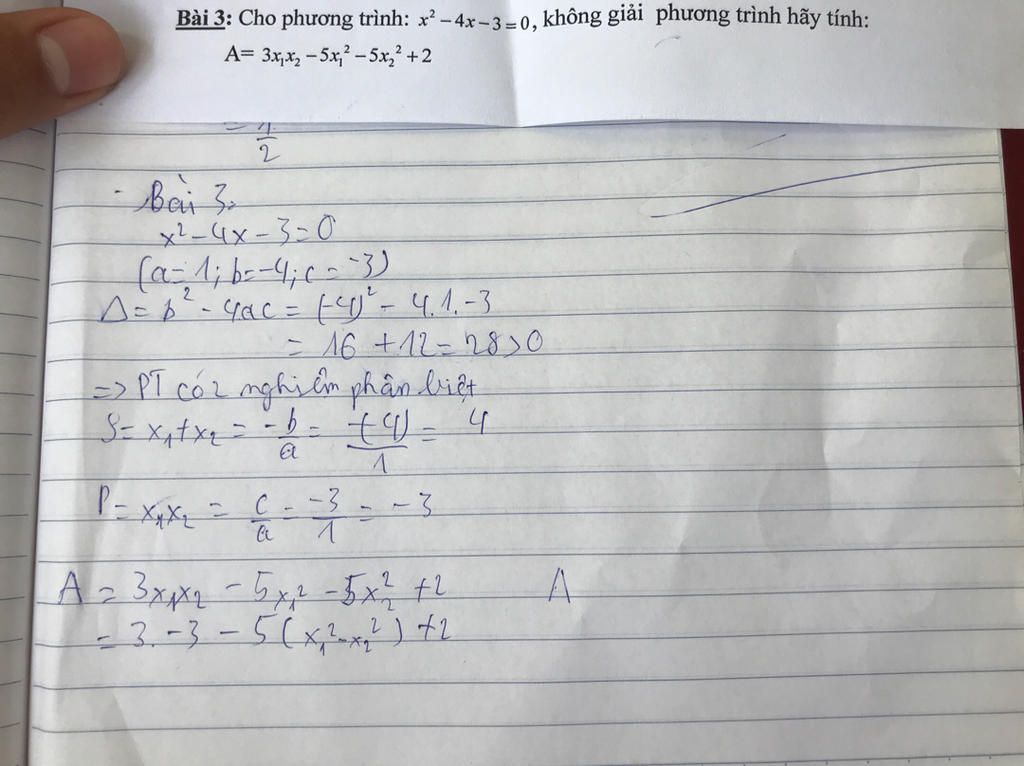 Bài 3: Cho phương trình: x² − 4x − 3 = 0, không giải phương trình hãy tính:
A= 3x₁x₂ − 5x₁² − 5x₂² + 2
= 1/2
Bài 3.
x² − 4x − 3 = 0
(a = 1; b = −4; c = −3)
Δ = b² − 4ac = (−4)² − 4.1.−3
= 16 + 12 = 28 > 0
=> PT có 2 nghiệm phân biệt
S = x₁ + x₂ = −b/a = −(−4)/1 = 4
P = x₁x₂ = c/a = −3/1 = −3
A = 3x₁x₂ − 5x₁² − 5x₂² + 2 A
= 3.−3 − 5(x₁² − x₂²) + 2